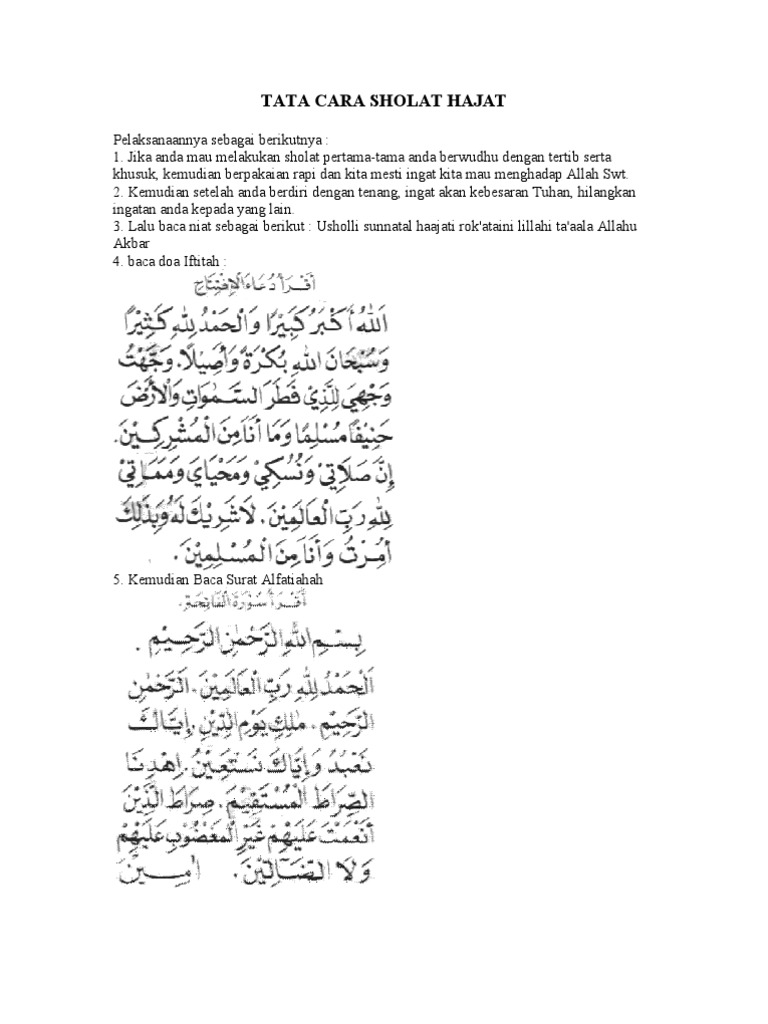 TATA CARA SHOLAT HAJAT
Pelaksanaannya sebagai berikutnya :
1. Jika anda mau melakukan sholat pertama-tama anda berwudhu dengan tertib serta
khusuk, kemudian berpakaian rapi dan kita mesti ingat kita mau menghadap Allah Swt.
2. Kemudian setelah anda berdiri dengan tenang, ingat akan kebesaran Tuhan, hilangkan
ingatan anda kepada yang lain.
3. Lalu baca niat sebagai berikut : Usholli sunnatal haajati rok'ataini lillahi ta'aala Allahu
Akbar
4. baca doa Iftitah :
أَقْرَأُ دُعَاءَ الْاِفْتِتَاحِ
اَللهُ أَكْبَرُ كَبِيْرًا وَالْحَمْدُ لِلّٰهِ كَثِيْرًا
وَسُبْحَانَ اللهِ بُكْرَةً وَأَصِيْلًا. وَجَّهْتُ
وَجْهِيَ لِلَّذِيْ فَطَرَ السَّمٰوَاتِ وَالْأَرْضَ
حَنِيْفًا مُسْلِمًا وَمَا أَنَا مِنَ الْمُشْرِكِيْنَ.
إِنَّ صَلَاتِيْ وَنُسُكِيْ وَمَحْيَايَ وَمَمَاتِيْ
لِلّٰهِ رَبِّ الْعَالَمِيْنَ. لَا شَرِيْكَ لَهُ وَبِذٰلِكَ
أُمِرْتُ وَأَنَا مِنَ الْمُسْلِمِيْنَ.
5. Kemudian Baca Surat Alfatiahah
أَقْرَأُ سُوْرَةَ الْفَاتِحَةِ.
بِسْمِ اللهِ الرَّحْمٰنِ الرَّحِيْمِ.
اَلْحَمْدُ لِلّٰهِ رَبِّ الْعَالَمِيْنَ. اَلرَّحْمٰنِ
الرَّحِيْمِ. مٰلِكِ يَوْمِ الدِّيْنِ. إِيَّاكَ
نَعْبُدُ وَإِيَّاكَ نَسْتَعِيْنُ. اِهْدِنَا
الصِّرَاطَ الْمُسْتَقِيْمَ. صِرَاطَ الَّذِيْنَ
أَنْعَمْتَ عَلَيْهِمْ غَيْرِ الْمَغْضُوْبِ عَلَيْهِمْ
وَلَا الضَّآلِّيْنَ. اٰمِيْنَ